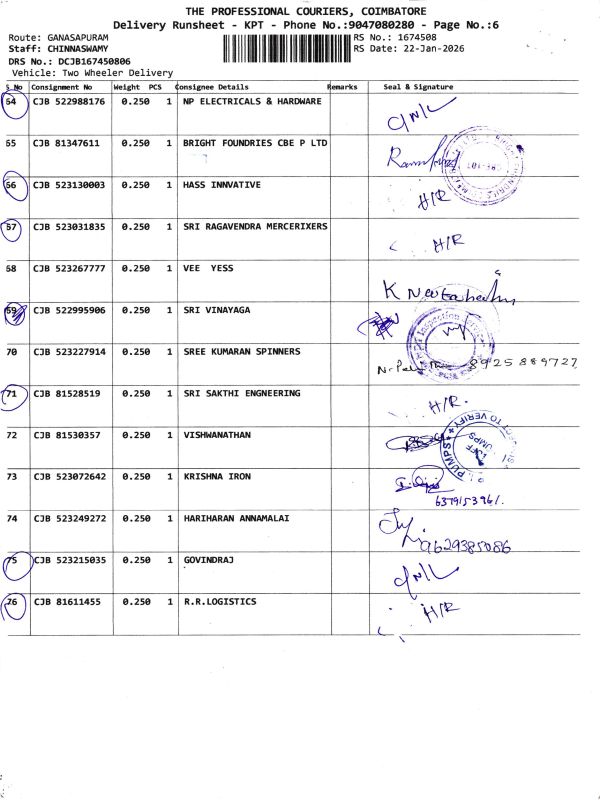 THE PROFESSIONAL COURIERS, COIMBATORE
Delivery Runsheet - KPT - Phone No.:9047080280 - Page No.:6
Route: GANASAPURAM
RS No.: 1674508
Staff: CHINNASWAMY
RS Date: 22-Jan-2026
DRS No.: DCJB167450806
Vehicle: Two Wheeler Delivery
S No Consignment No Weight PCS Consignee Details Remarks Seal & Signature
64 CJB 522988176 0.250 1 NP ELECTRICALS & HARDWARE
65 CJB 81347611 0.250 1 BRIGHT FOUNDRIES CBE P LTD
66 CJB 523130003 0.250 1 HASS INNVATIVE H/R
67 CJB 523031835 0.250 1 SRI RAGAVENDRA MERCERIXERS H/R
68 CJB 523267777 0.250 1 VEE YESS
69 CJB 522995906 0.250 1 SRI VINAYAGA
70 CJB 523227914 0.250 1 SREE KUMARAN SPINNERS 8925889727
71 CJB 81528519 0.250 1 SRI SAKTHI ENGNEERING H/R.
72 CJB 81530357 0.250 1 VISHWANATHAN
73 CJB 523072642 0.250 1 KRISHNA IRON
6379153961.
74 CJB 523249272 0.250 1 HARIHARAN ANNAMALAI
9629385086
75 CJB 523215035 0.250 1 GOVINDRAJ
76 CJB 81611455 0.250 1 R.R.LOGISTICS H/R